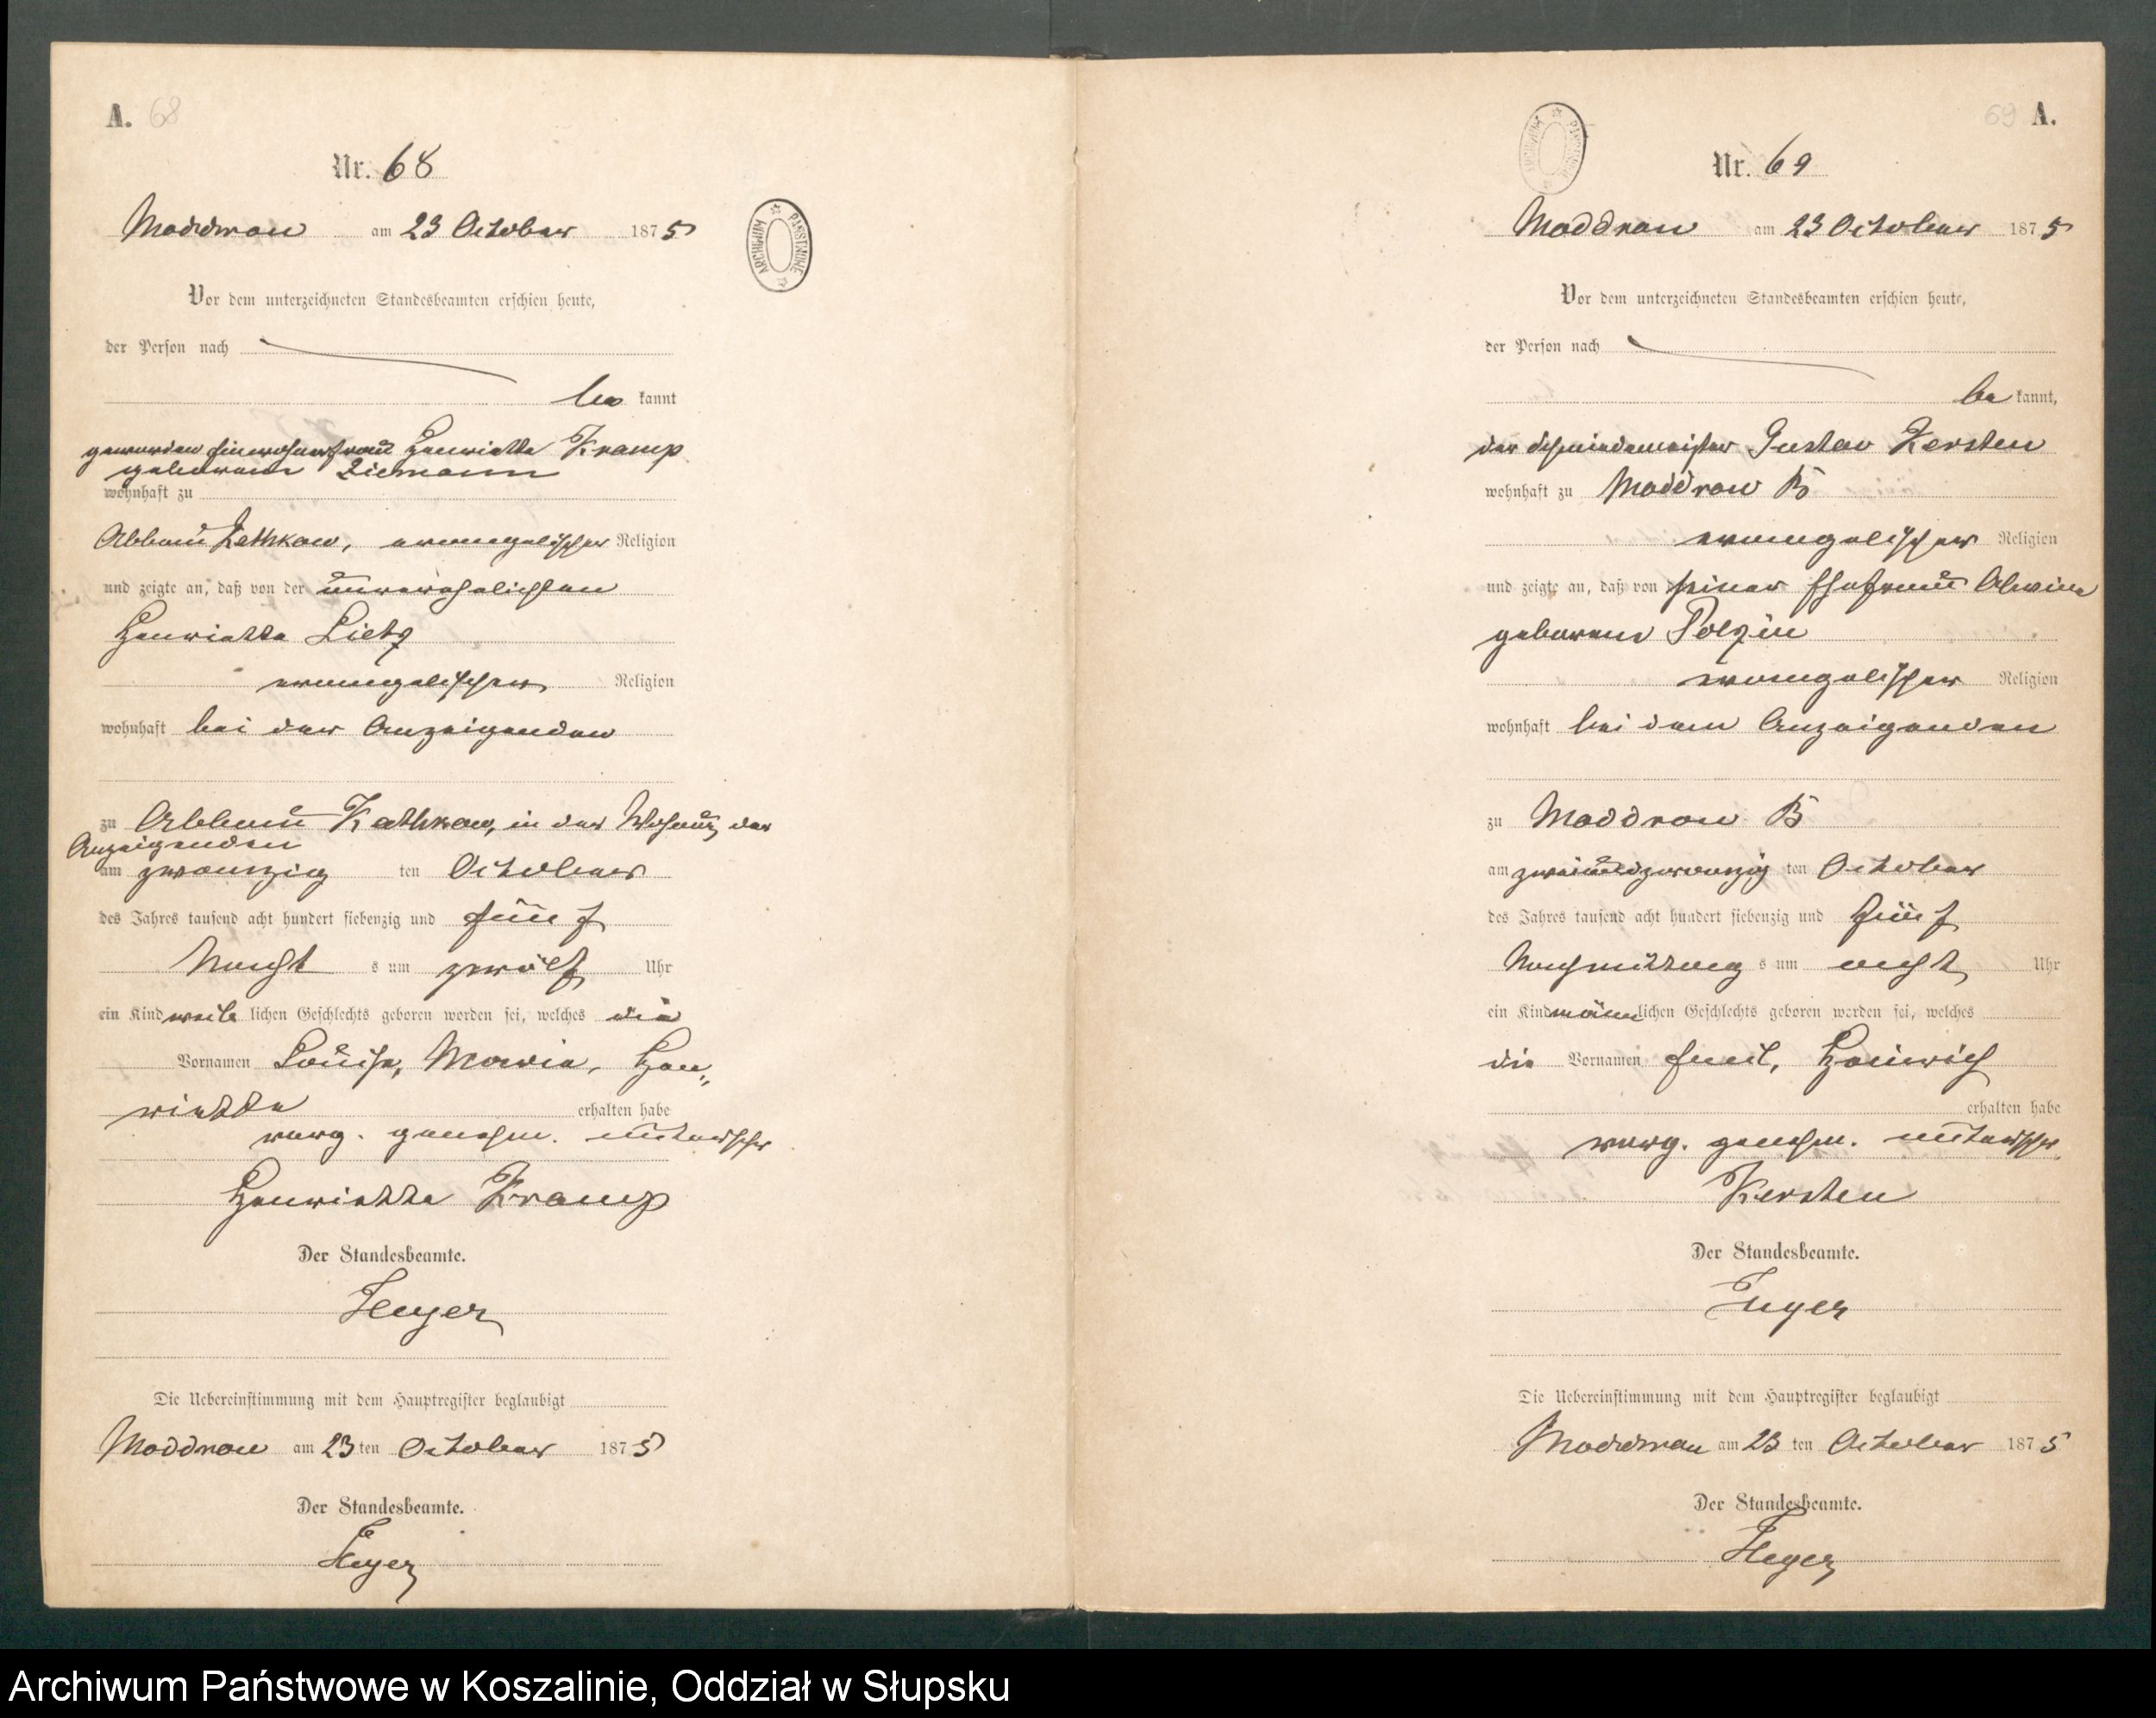 A. 68
Nr. 68
Moddrow am 23 October 1875
ARCHIWUM PAŃSTWOWE
Vor dem unterzeichneten Standesbeamten erschien heute,
der Person nach
be kannt
Einwohnerfrau Henriette Kramp
geborene Ziemann
wohnhaft zu
Abbau Kathkow, evangelischer Religion
und zeigte an, daß von der unverehelichten
Henriette Lietz
evangelischer Religion
wohnhaft bei der Anzeigenden
zu Abbau Kathkow, in der Wohnung der
Anzeigenden
am zwanzig ten October
des Jahres tausend acht hundert siebenzig und fünf
Nacht s um zwölf Uhr
ein Kind weib lichen Geschlechts geboren worden sei, welches die
Vornamen Louise, Marie, Hen„
riette erhalten habe
vorg. genehm. unterschr
Henriette Kramp
Der Standesbeamte.
Heyer
Die Uebereinstimmung mit dem Hauptregister beglaubigt
Moddrow am 23 ten October 1875
Der Standesbeamte.
Heyer
69 A.
ARCHIWUM PAŃSTWOWE
Nr. 69
Moddrow am 23 October 1875
Vor dem unterzeichneten Standesbeamten erschien heute,
der Person nach
be kannt,
der Schmiedemeister Gustav Kersten
wohnhaft zu Moddrow B
evangelischer Religion
und zeigte an, daß von seiner Ehefrau Alwine
geborene Polzin
evangelischer Religion
wohnhaft bei dem Anzeigenden
zu Moddrow B
am zweiundzwanzig ten October
des Jahres tausend acht hundert siebenzig und fünf
Nachmittag s um acht Uhr
ein Kind männ lichen Geschlechts geboren worden sei, welches
die Vornamen Emil, Heinrich
erhalten habe
vorg. genehm. unterschr.
Kersten
Der Standesbeamte.
Heyer
Die Uebereinstimmung mit dem Hauptregister beglaubigt
Moddrow am 23 ten October 1875
Der Standesbeamte.
Heyer
Archiwum Państwowe w Koszalinie, Oddział w Słupsku